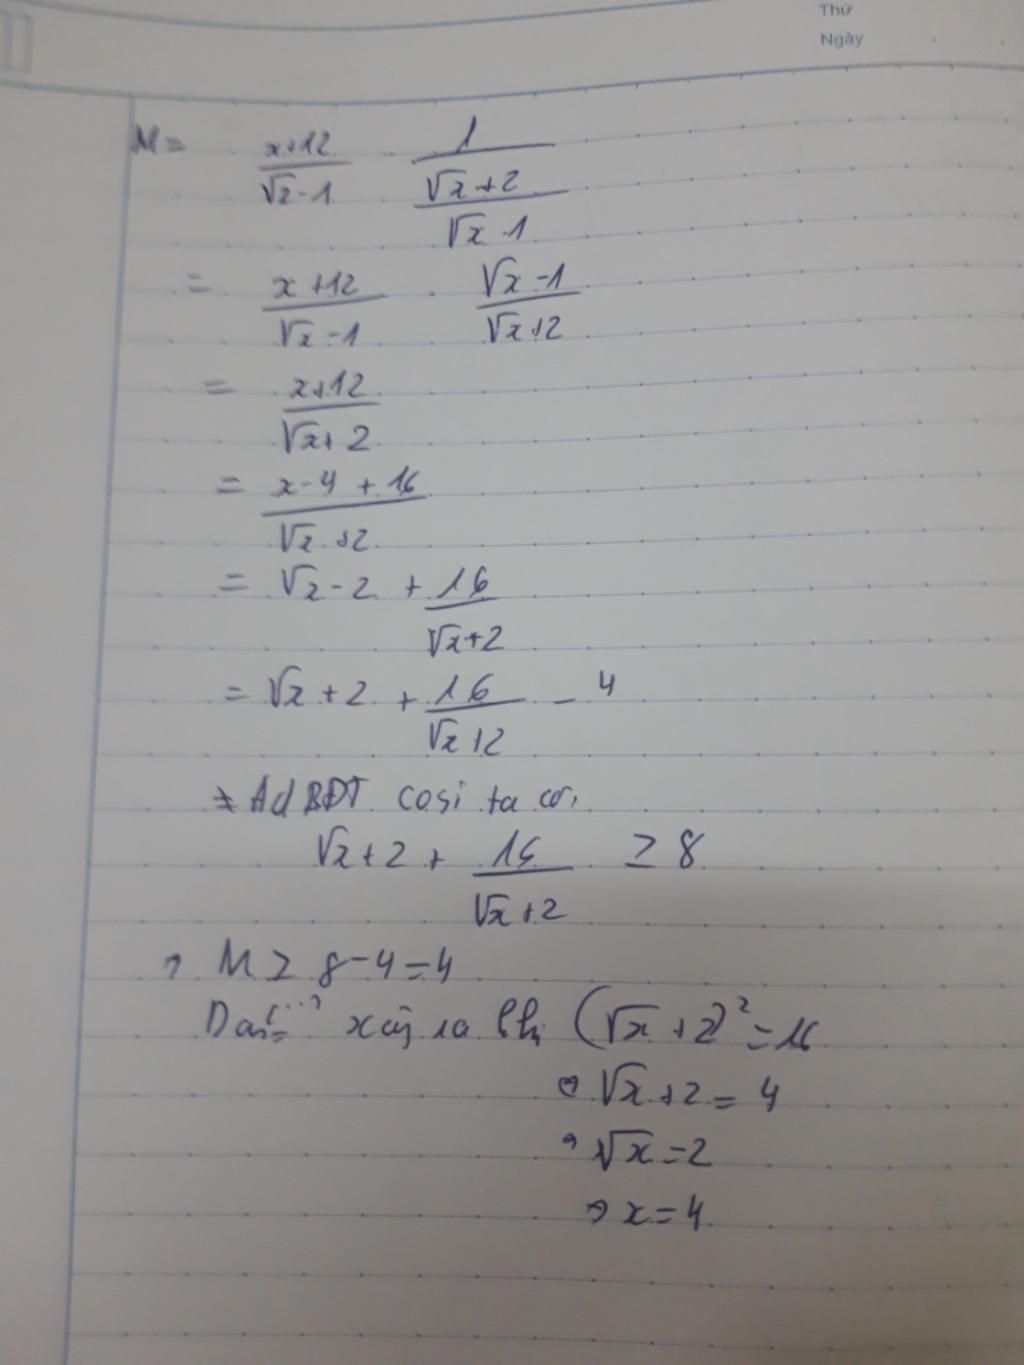 Thứ
Ngày
M = (x+12)/(√x-1) · 1/((√x+2)/(√x-1))
= (x+12)/(√x-1) · (√x-1)/(√x+2)
= (x+12)/(√x+2)
= (x-4+16)/(√x+2)
= √x-2 + 16/(√x+2)
= √x+2 + 16/(√x+2) - 4
Ad BĐT cosi ta có,
√x+2 + 16/(√x+2) ≥ 8
M ≥ 8-4=4
Dấu "=" xảy ra khi (√x+2)²=16
⇔ √x+2=4
⇒ √x=2
⇒ x=4